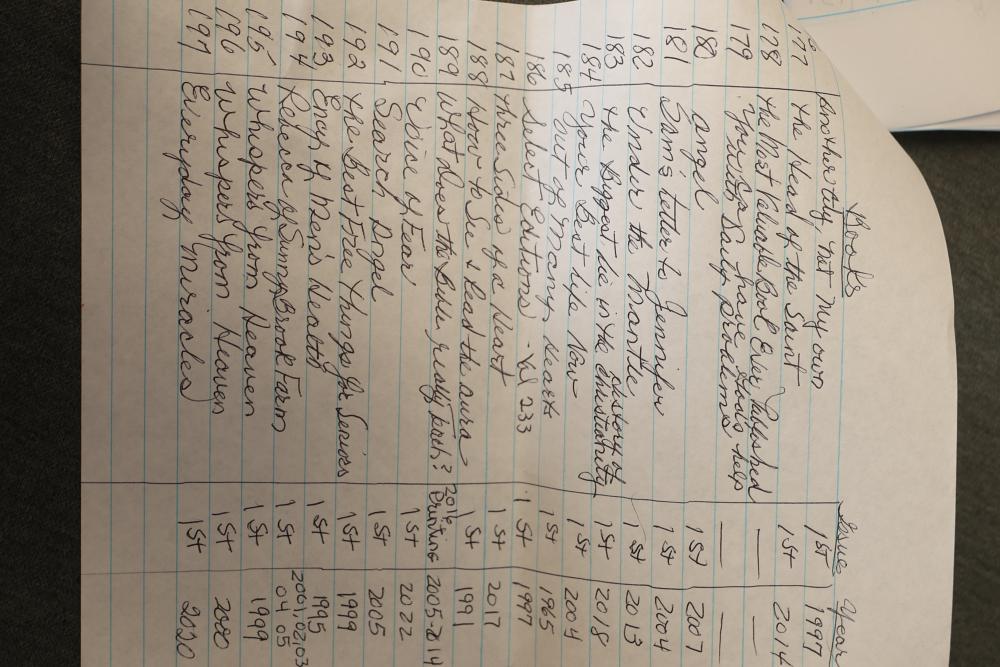 Books Issue Year
Another City, Not My own 1st 1997
177 The Head of the Saint 1st 2014
178 The Most Valuable Book Ever Published — —
179 You Can have God's help
with Daily problems — —
180 Angel 1st 2007
181 Sam's Letter to Jennifer 1st 2004
182 Under the Mantle 1st 2013
183 The Biggest lie in the history of
Christianity 1st 2018
184 Your Best life Now 1st 2004
185 Out of Many Hearts 1st 1965
186 Select Editions - Vol 233 1st 1997
187 Three Sides of a Heart 1st 2017
188 How to See & Read the aura 1st 1991
189 What Does the Bible really teach? 2014 Printing 2005-2014
190 Voice of Fear 1st 2022
191 Search Angel 1st 2005
192 The Best Free Things for Seniors 1st 1999
193 Ency of Men's Health 1st 1995
194 Rebecca of Sunny Brook Farm 1st 2001,02,03
04 05
195 Whispers from Heaven 1st 1999
196 Whispers from Heaven 1st 2000
197 Everyday Miracles 1st 2020